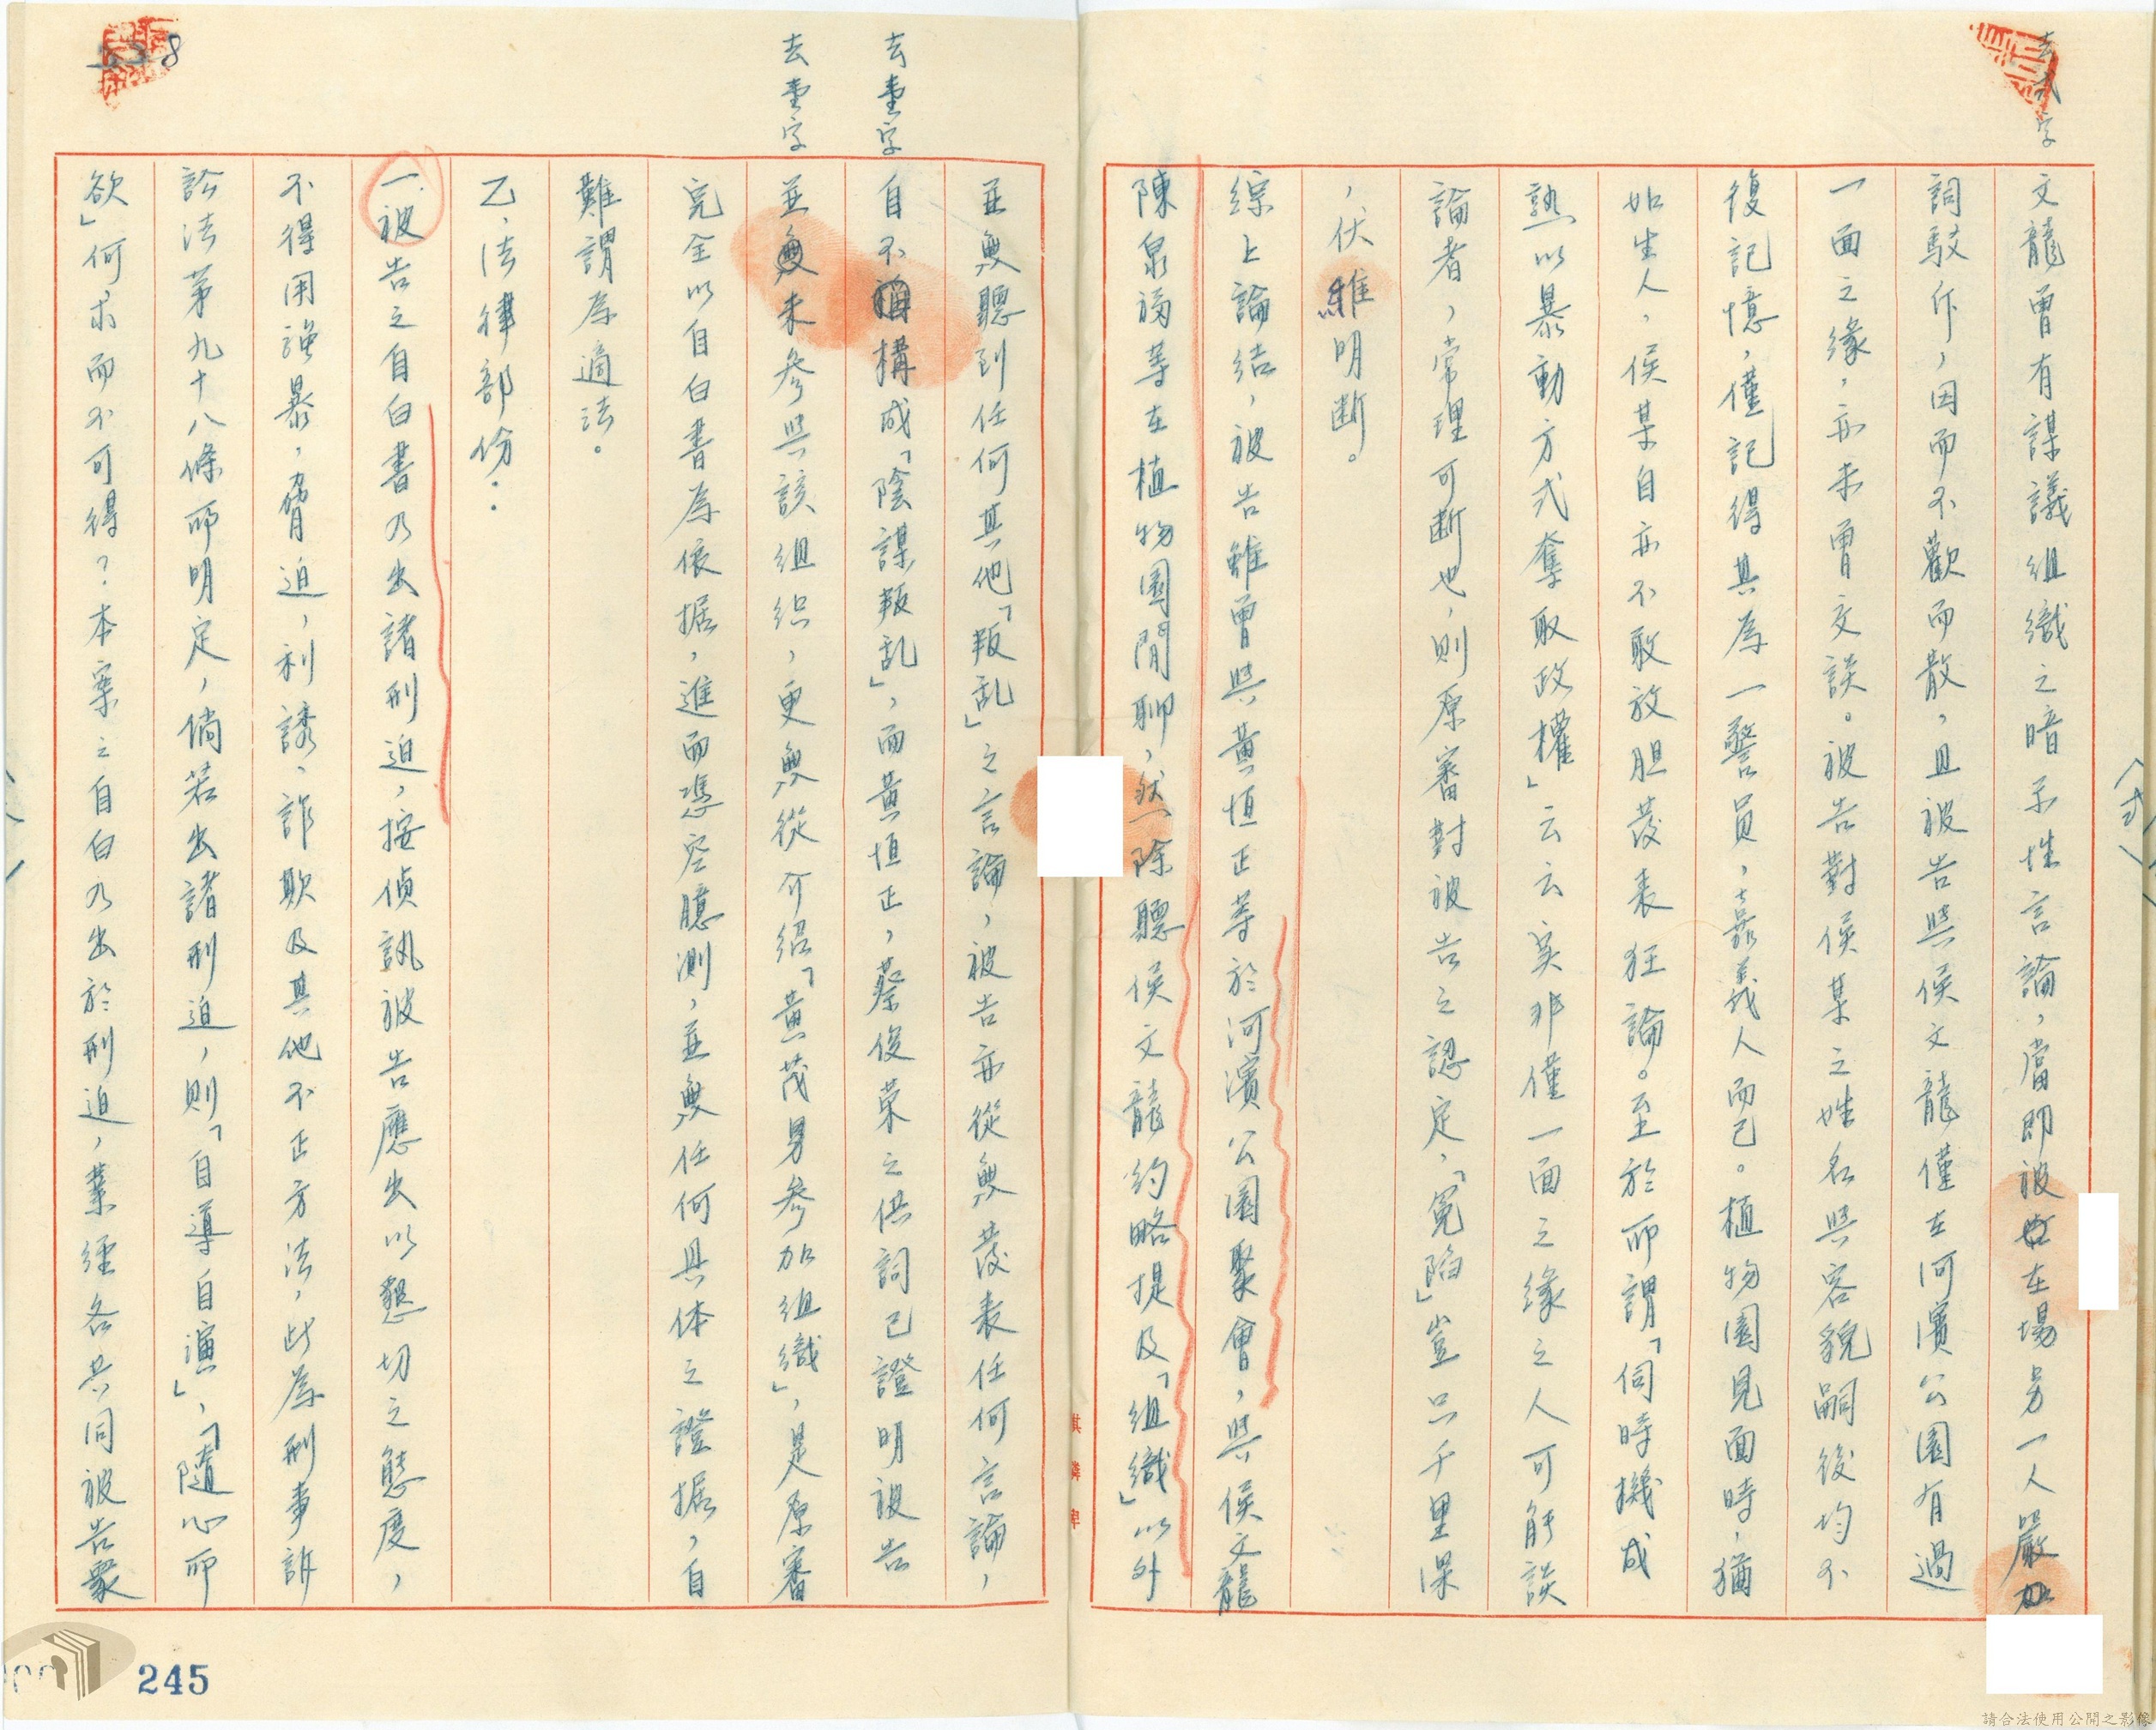 去弍字
文龍曾有謀議組織之暗示性言論，當即被在場另一人嚴加
詞駁斥，因而不歡而散，且被告與侯文龍僅在河濱公園有過
一面之緣，亦未曾交談。被告對侯某之姓名與容貌嗣後均不
復記憶，僅記得其為一警員，嘉義人而已。植物園見面時，猶
如生人，侯某自亦不敢放胆發表狂論。至於所謂「伺時機成
熟以暴動方式奪取政權」云云实非僅一面之緣之人可能談
論者，常理可断也，則原審對被告之認定，「冤陷」豈只千里深
，伏維明断。
綜上論結，被告雖曾與黃恒正等於河濱公園聚會，與侯文龍
陳泉福等在植物園閒聊，然除聽侯文龍約略提及「組織」以外
（弍）
去壹字
去壹字
並無聽到任何其他「叛乱」之言論，被告亦從無發表任何言論，
自不構成「陰謀叛乱」，而黃恒正，蔡俊荣之供詞已證明被告
並未參與該組织，更無從介紹「黃茂男參加組織」，是原審
完全以自白書為依据，進而憑空臆測，並無任何具体之證据，自
難謂為適法。
乙、法律部份：
一.被告之自白書乃出諸刑迫，按偵訊被告應出以懇切之態度，
不得用強暴，脅迫，利誘、詐欺及其他不正方法，此為刑事訴
訟法第九十八條所明定，倘若出諸刑迫，則「自導自演」，「隨心所
欲」何求而不可得？本案之自白乃出於刑迫，業經各共同被告眾
8
245
請合法使用公開之影像